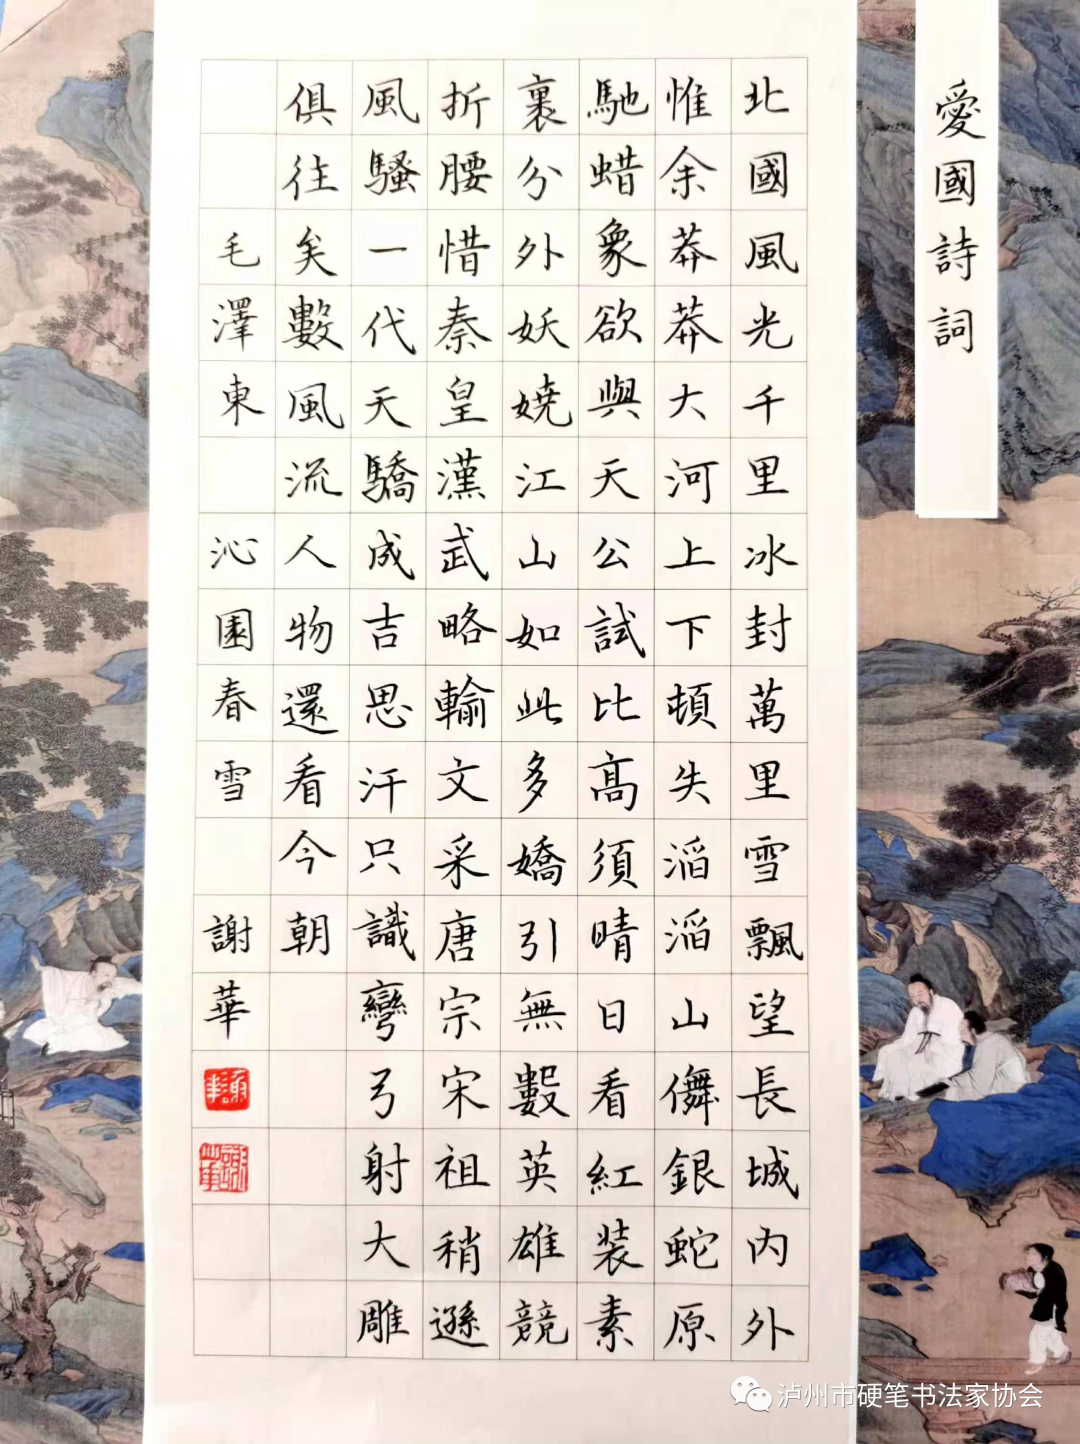 愛國詩詞
北國風光千里冰封萬里雪飄望長城内外
惟余莽莽大河上下頓失滔滔山儛銀蛇原
馳蜡象欲與天公試比高須晴日看紅装素
裹分外妖嬈江山如此多嬌引無數英雄競
折腰惜秦皇漢武略輸文采唐宗宋祖稍遜
風騷一代天驕成吉思汗只識彎弓射大雕
俱往矣數風流人物還看今朝
毛澤東 沁園春雪 謝華
泸州市硬笔书法家协会